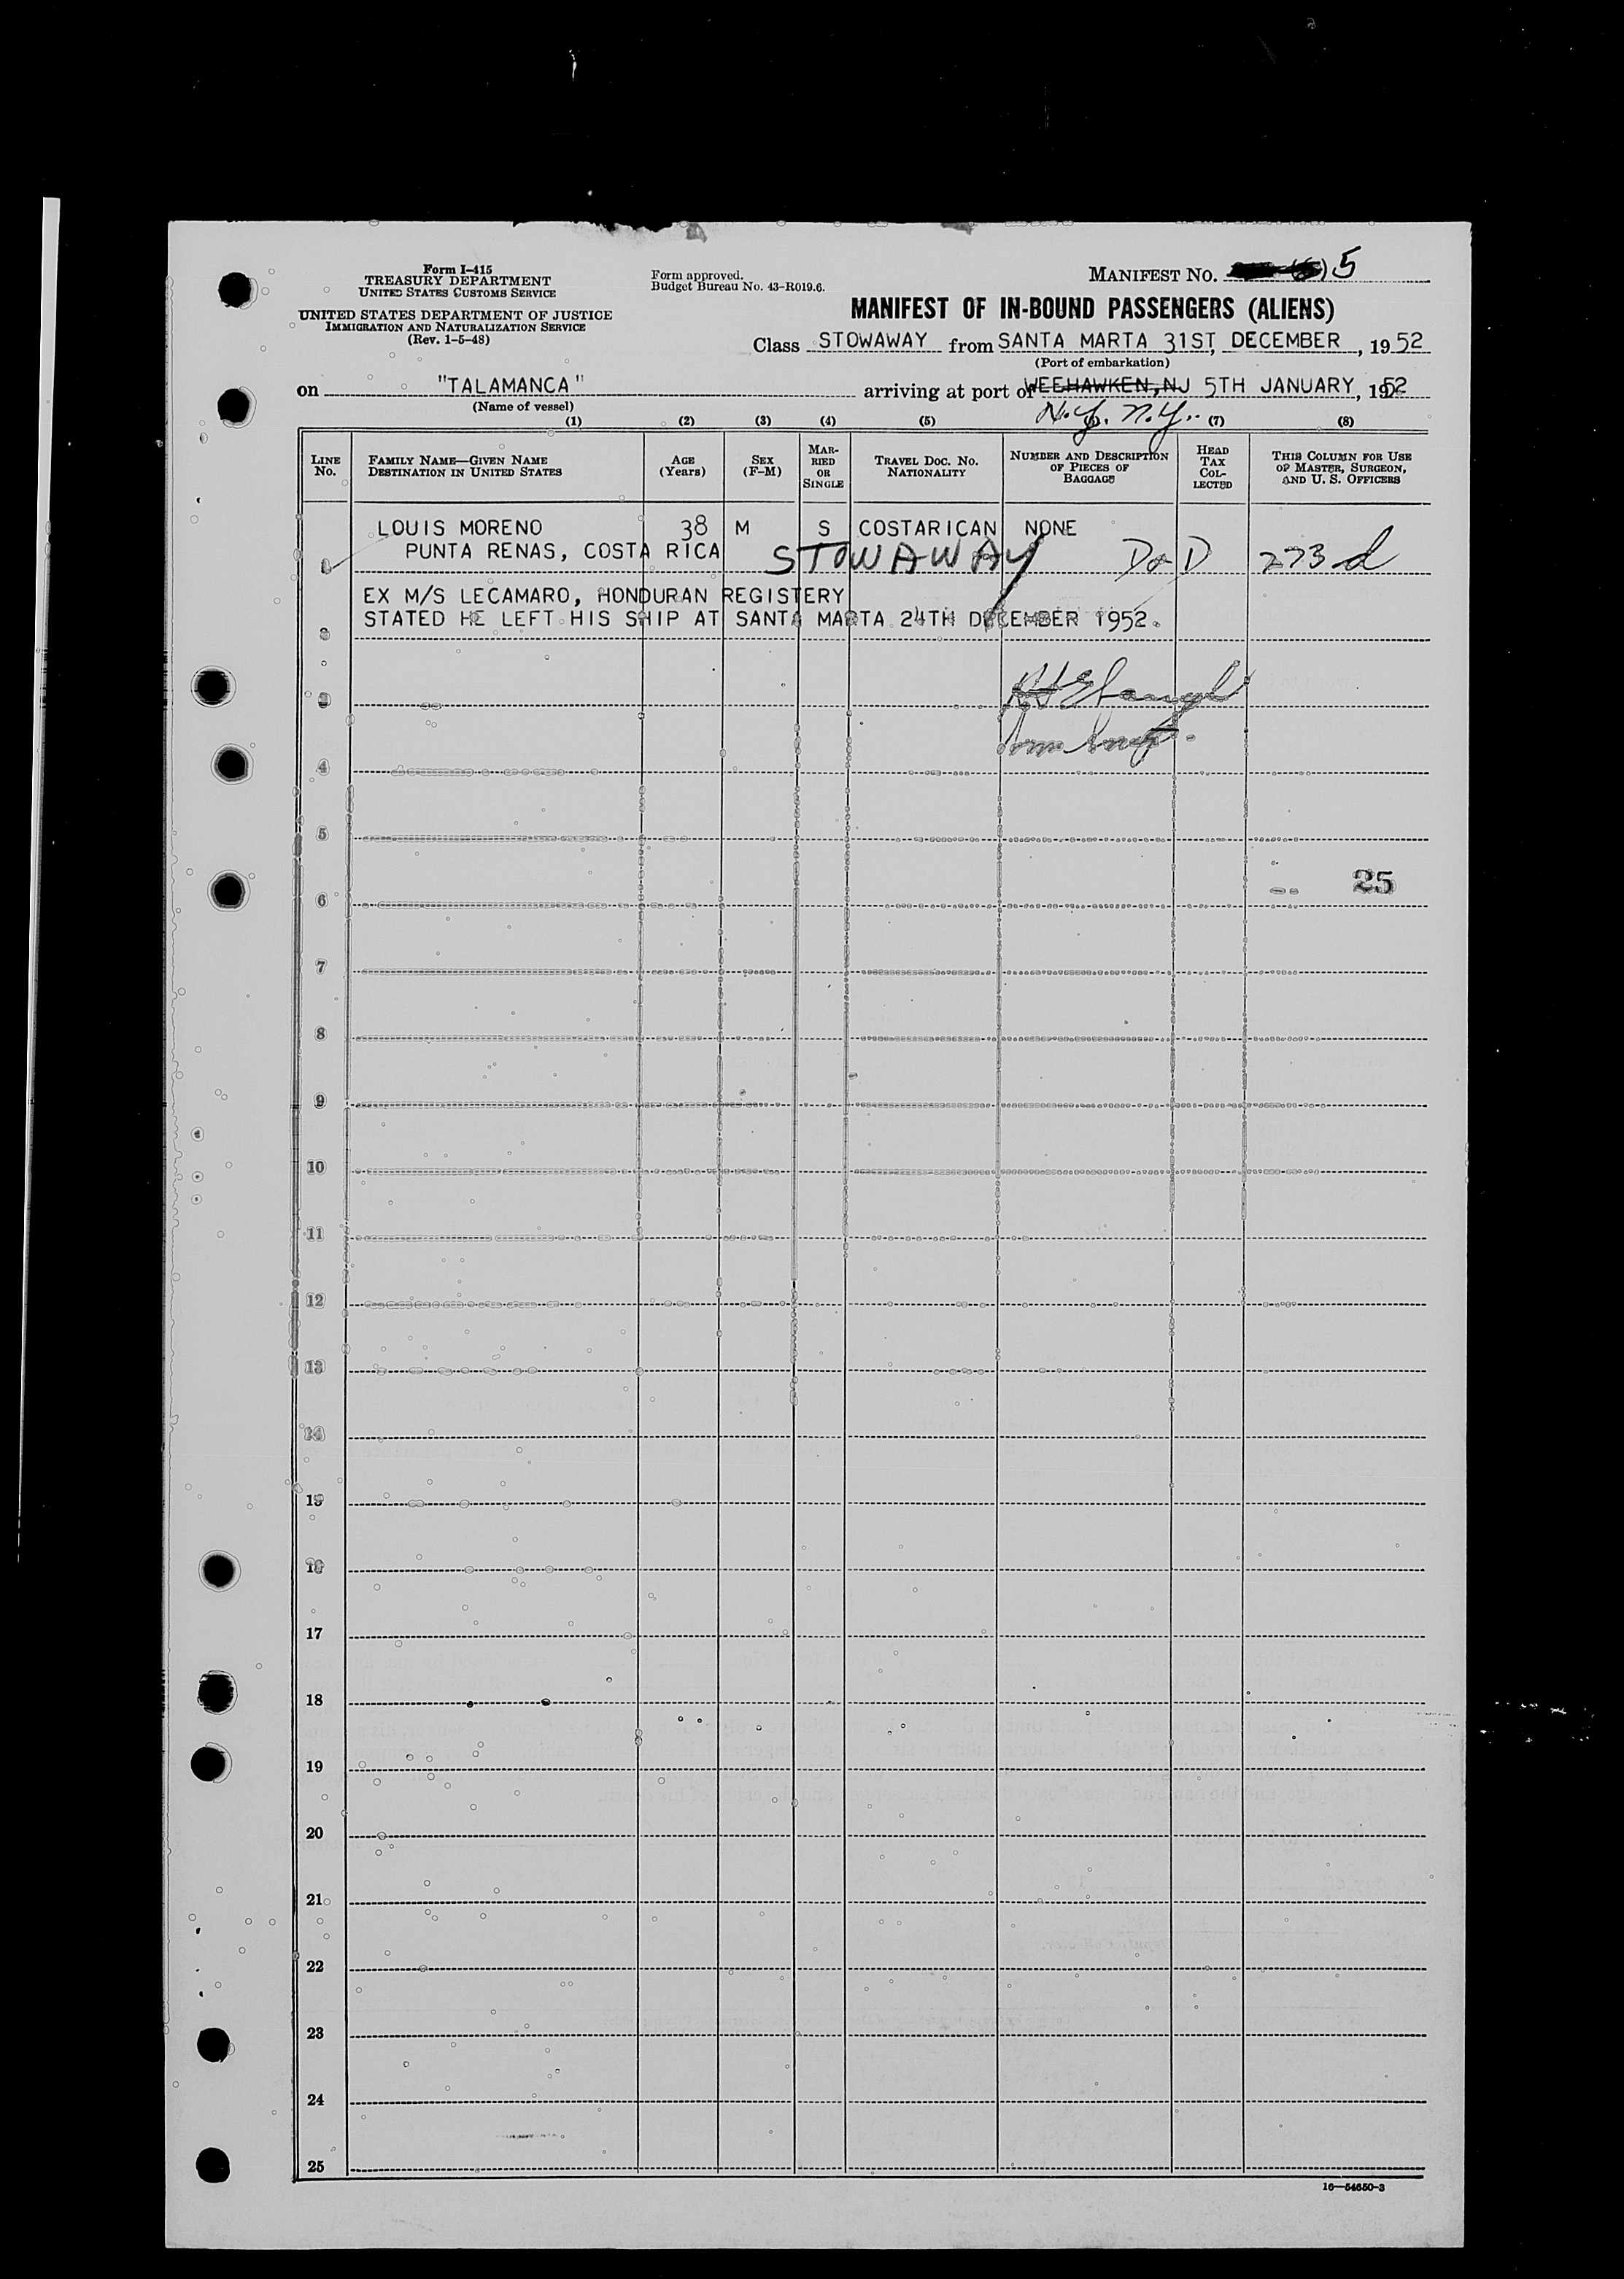 Form I-415
TREASURY DEPARTMENT
UNITED STATES CUSTOMS SERVICE
UNITED STATES DEPARTMENT OF JUSTICE
IMMIGRATION AND NATURALIZATION SERVICE
(Rev. 1-5-48)
Form approved.
Budget Bureau No. 43-R019.6.
MANIFEST NO. 5
MANIFEST OF IN-BOUND PASSENGERS (ALIENS)
Class STOWAWAY from SANTA MARTA 31ST, DECEMBER, 1952
(Port of embarkation)
on "TALAMANCA" arriving at port of WEEHAWKEN, NJ 5TH JANUARY, 1952
(Name of vessel)
N.Y. N.Y.
(1) (2) (3) (4) (5) (6) (7) (8)
LINE No.
FAMILY NAME—GIVEN NAME
DESTINATION IN UNITED STATES
AGE
(Years)
SEX
(F-M)
MARRIED OR SINGLE
TRAVEL DOC. NO.
NATIONALITY
NUMBER AND DESCRIPTION OF PIECES OF BAGGAGE
HEAD TAX COLLECTED
THIS COLUMN FOR USE OF MASTER, SURGEON, AND U. S. OFFICERS
LOUIS MORENO 38 M S COSTARICAN NONE
1 PUNTA RENAS, COSTA RICA STOWAWAY D&D 273d
EX M/S LECAMARO, HONDURAN REGISTERY
2 STATED HE LEFT HIS SHIP AT SANTA MARTA 24TH DECEMBER 1952.
3
4
5
25
6
7
8
9
10
11
12
13
14
15
16
17
18
19
20
21
22
23
24
25
16—54650-3